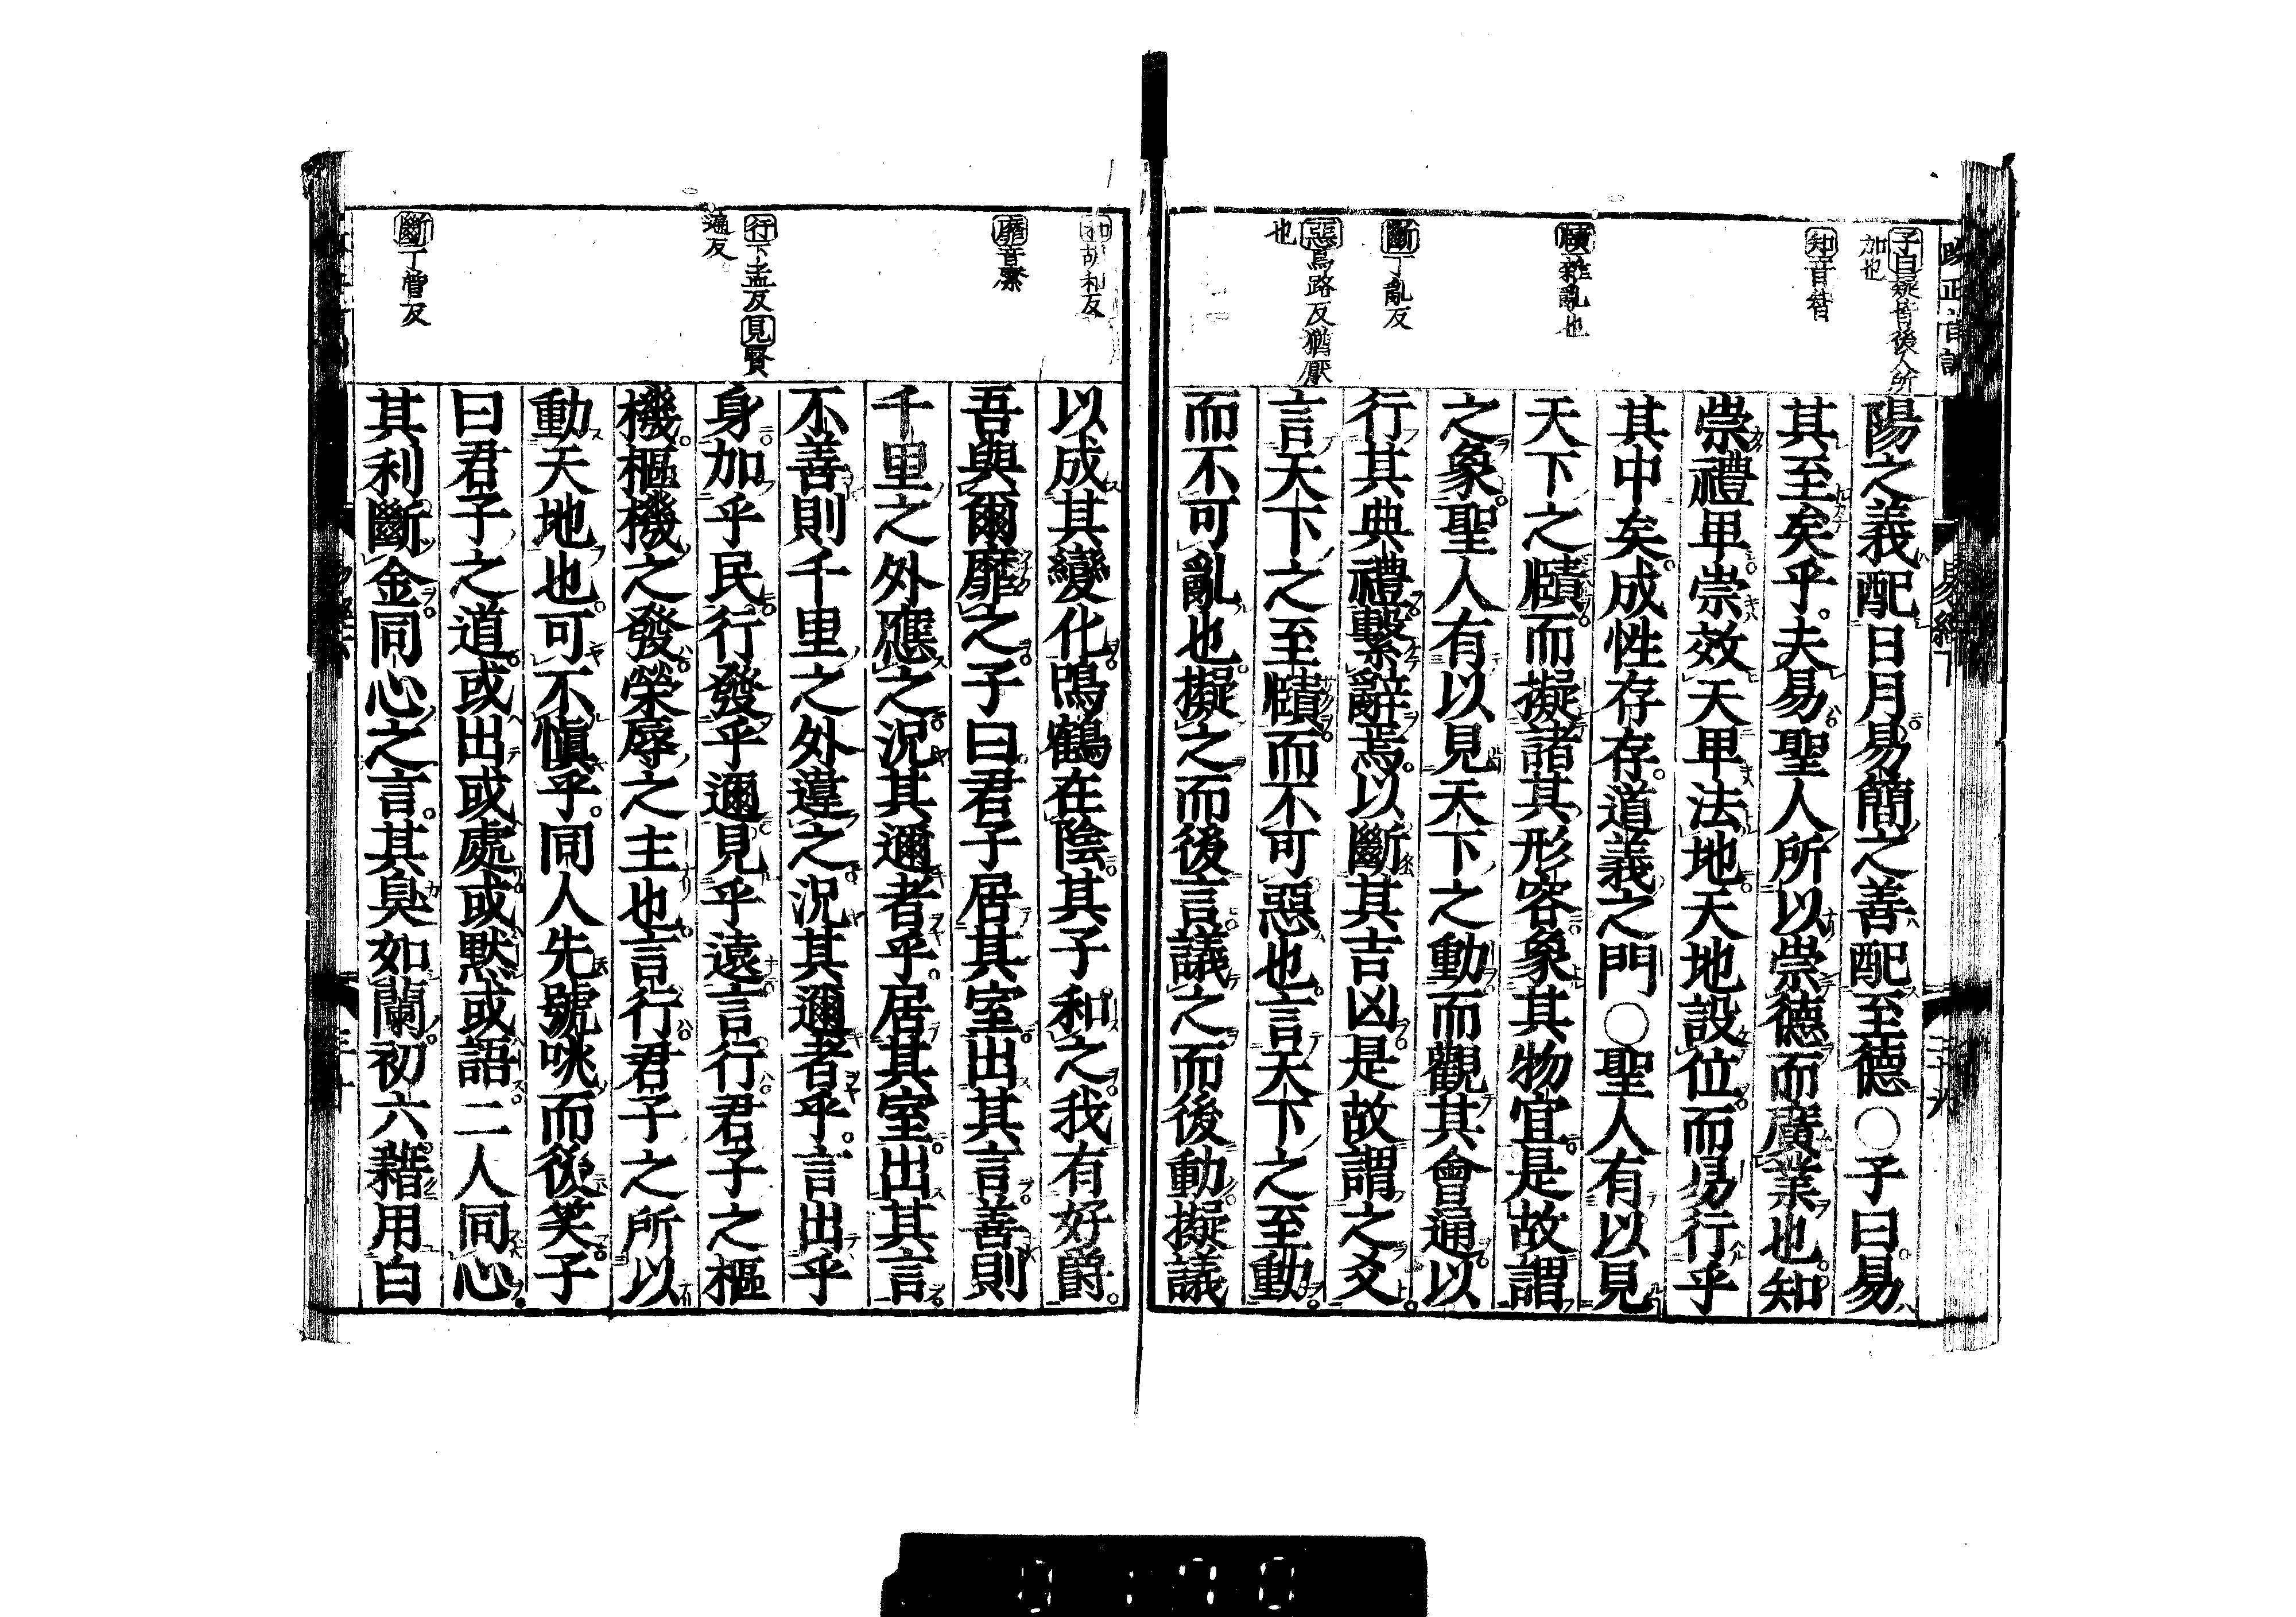 子曰疑皆後人所
加也
知音智
賾雜亂也
斷丁亂反
惡烏路反猶厭
也
陽之義配日月易簡之善配至德○子曰易
其至矣乎夫易聖人所以崇德而廣業也知
崇禮甲崇效天甲法地天地設位而易行乎
其中矣成性存存道義之門○聖人有以見
天下之賾而擬諸其形容象其物宜是故謂
之象聖人有以見天下之動而觀其會通以
行其典禮繫辭焉以斷其吉凶是故謂之爻
言天下之至賾而不可惡也言天下之至動
而不可亂也擬之而後言議之而後動擬議
易經下
二十九
和胡和反
靡音縻
行下孟反見賢
遍反
斷丁管反
以成其變化鳴鶴在陰其子和之我有好爵
吾與爾靡之子曰君子居其室出其言善則
千里之外應之況其邇者乎居其室出其言
不善則千里之外違之況其邇者乎言出乎
身加乎民行發乎邇見乎遠言行君子之樞
機樞機之發榮辱之主也言行君子之所以
動天地也可不愼乎同人先號咷而後笑子
曰君子之道或出或處或默或語二人同心
其利斷金同心之言其臭如蘭初六藉用白